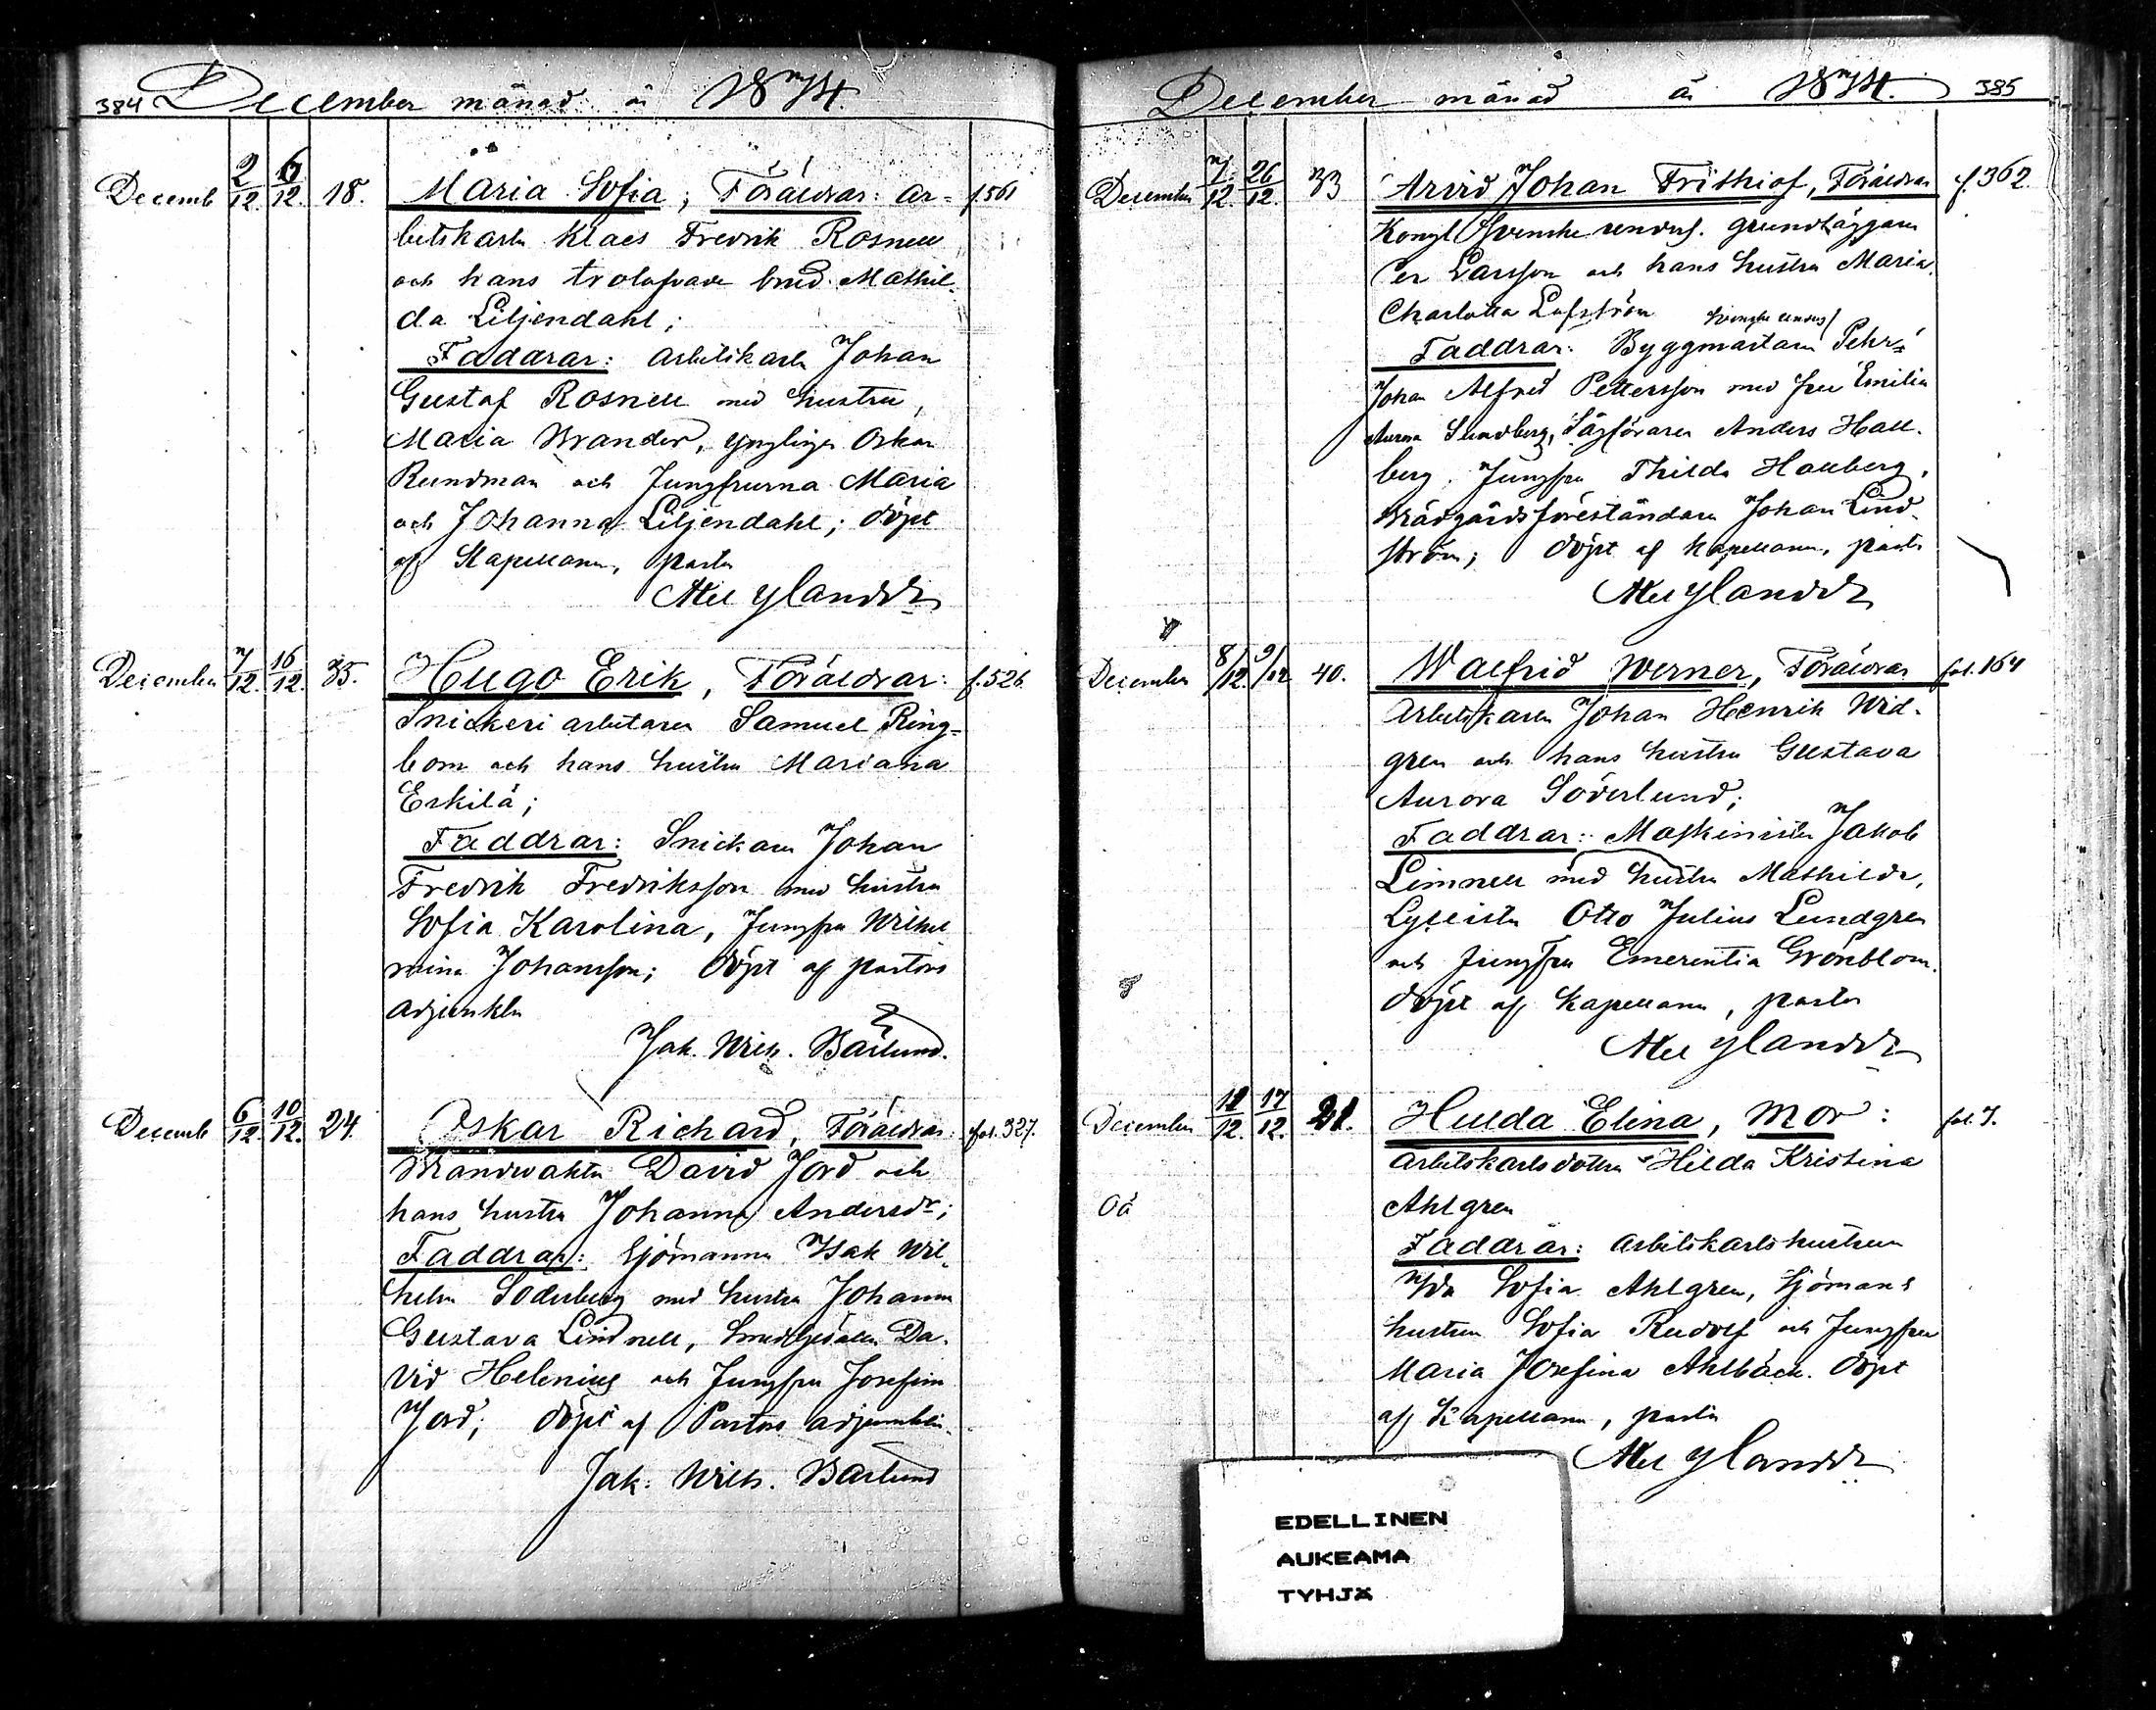 384 December månad år 1874.
Decemb 2/12. 6/12. 18. Maria Sofia; Föräldrar: ar= f.561
betskarln Klaes Fredrik Rosnell
och hans trolofvade brud Mathil-
da Liljendahl;
Faddrar: arbetskarln Johan
Gustaf Rosnell med hustru,
Maria Brander, ynglingen Oskar
Rundman och Jungfrurna Maria
och Johanna Liljendahl; döpt
af Kapellanen, pastor
Axel Ylander
December 7/12. 16/12. 35. Hugo Erik, Föräldrar: f.526
Snickeri arbetaren Samuel Ring=
bom och hans hustru Mariana
Erkilä;
Faddrar: Snickaren Johan
Fredrik Fredriksson med hustru
Sofia Karolina, Jungfru Wilhel
mina Johansson; döpt af pastors
adjunkten
Jak. Wilh. Bärlund.
Decemb 6/12. 10/12. 24. Oskar Richard, Föräldrar: fol.327.
Brandvakten David Jord och
hans hustru Johanna Andersdr;
Faddrar: Sjömannen Isak Wil-
helm Söderberg med hustru Johanna
Gustava Lindnell, Smedgesällen Da-
vid Helenius och Jungfru Josefina
Jord; döpt af Pastors adjunkten
Jak. Wilh. Bärlund
December månad år 1874. 385
December 7/12. 26/12. 33 Arvid Johan Frithiof, Föräldrar f.362.
Kongl Svenske unders. grundläggaren
Per Larsson och hans hustru Maria
Charlotta Löfström Svenske unders/
Faddrar: Byggmästaren Pehr
Johan Alfred Pettersson med fru Emilia
Aurora Sundberg, Sågföraren Anders Hall-
berg, Jungfru Thilda Hallberg,
Brädgårdsföreståndaren Johan Lind-
ström; döpt af kapellanen, pastor
Axel Ylander
December 8/12. 9/12 40. Walfrid Werner, Föräldrar fol.164
Arbetskarln Johan Henrik Wid-
gren och hans hustru Gustava
Aurora Söderlund;
Faddrar: Maskinisten Jakob
Limnell med hustru Mathilda,
Lyceisten Otto Julius Lundgren
och Jungfru Emerentia Grönblom.
döpt af Kapellanen, pastor
Axel Ylander
December 12/12. 17/12. 21. Hulda Elina, Mor: fol. 7.
Arbetskarlsdottren Hilda Kristina
Oä Ahlgren
Faddrar: Arbetskarlshustrun
Ida Sofia Ahlgren, Sjömans
hustrun Sofia Rudolf och Jungfru
Maria Josefina Ahlbäck. Döpt
af Kapellanen, pastor
Axel Ylander
EDELLINEN
AUKEAMA
TYHJÄ